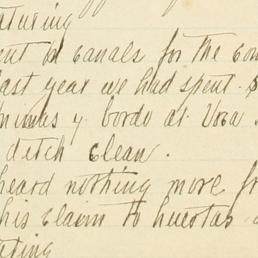 turing
ent on canals for the com
last year we had spent $
nimas y bordo at Vosa
ditch clean.
heard nothing more fr
his claim to huertas
ating